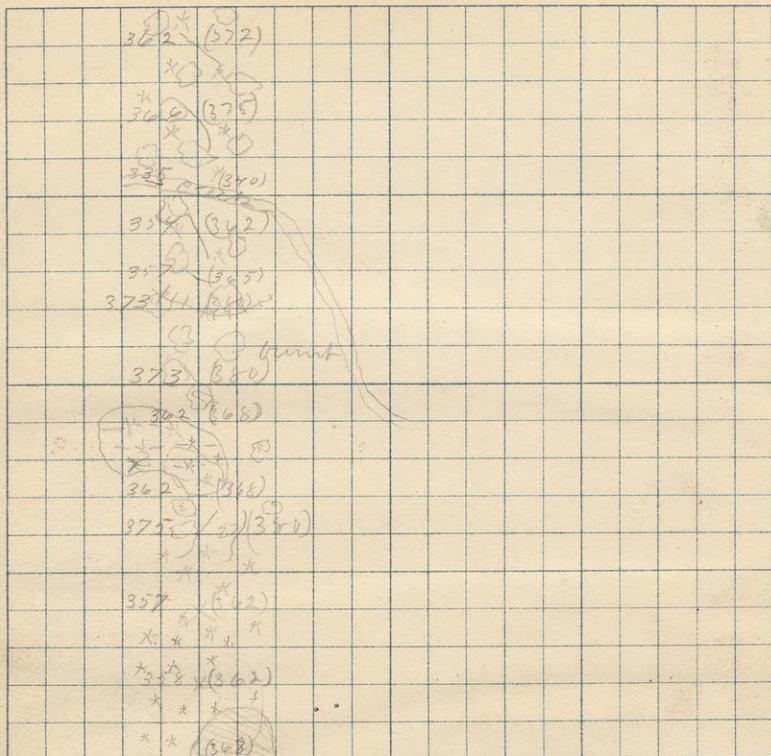 362 (372)
366 (375)
335 (340)
354 (342)
357 (365)
373
burnt
373 (380)
362 (368)
362 (368)
375 (380)
357 (362)
358 (362)
(368)